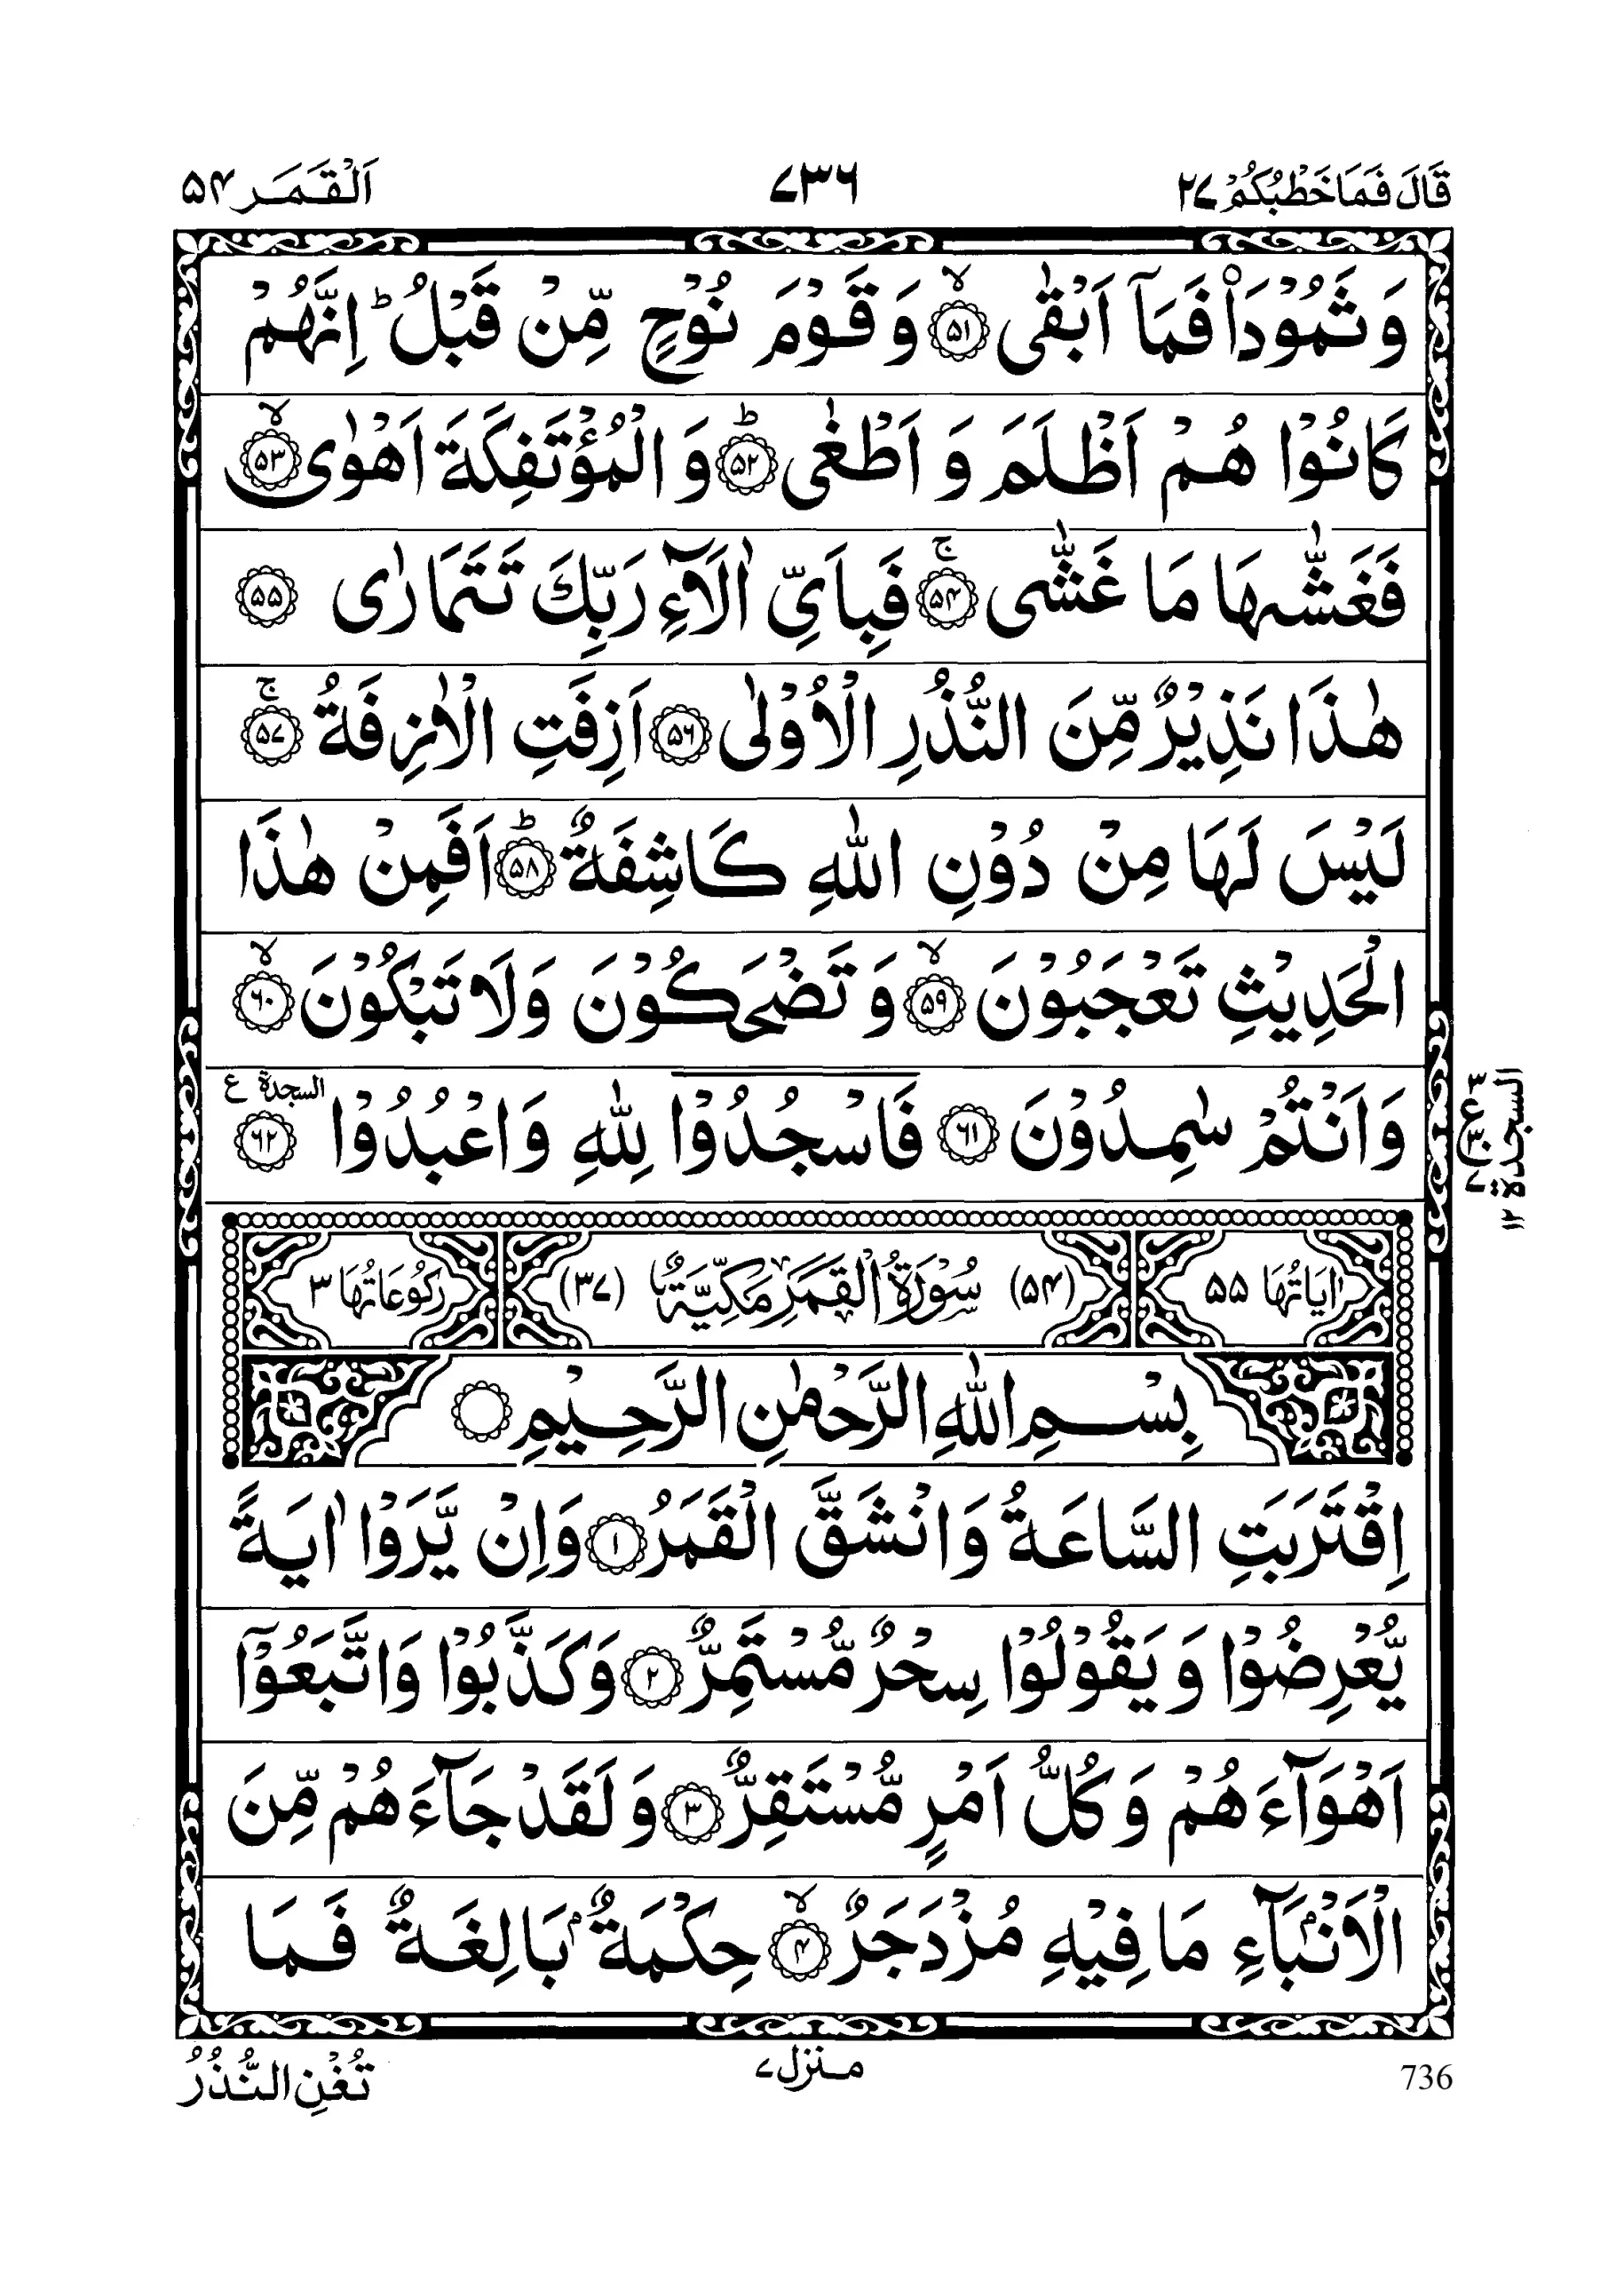 قَالَ فَمَا خَطْبُكُمْ ٢٧ ٧٣٦ اَلْقَمَر ٥٤
وَ ثَمُوْدَا۟ فَمَاۤ اَبْقٰى ۙ﴿٥١﴾ وَ قَوْمَ نُوْحٍ مِّنْ قَبْلُ ؕ اِنَّهُمْ
كَانُوْا هُمْ اَظْلَمَ وَ اَطْغٰى ؕ﴿٥٢﴾ وَ الْمُؤْتَفِكَةَ اَهْوٰى ۙ﴿٥٣﴾
فَغَشّٰىهَا مَا غَشّٰى ۚ﴿٥٤﴾ فَبِاَيِّ اٰلَآءِ رَبِّكَ تَتَمَارٰى ﴿٥٥﴾
هٰذَا نَذِيْرٌ مِّنَ النُّذُرِ الْاُوْلٰى ﴿٥٦﴾ اَزِفَتِ الْاٰزِفَةُ ۚ﴿٥٧﴾
لَيْسَ لَهَا مِنْ دُوْنِ اللّٰهِ كَاشِفَةٌ ؕ﴿٥٨﴾ اَفَمِنْ هٰذَا
الْحَدِيْثِ تَعْجَبُوْنَ ۙ﴿٥٩﴾ وَ تَضْحَكُوْنَ وَلَا تَبْكُوْنَ ۙ﴿٦٠﴾
وَاَنْتُمْ سٰمِدُوْنَ ﴿٦١﴾ فَاسْجُدُوْا لِلّٰهِ وَاعْبُدُوْا ﴿٦٢﴾ السجدة ع
السجدة ١٢
٣ ع ٣٠ ٧
اٰيَاتُهَا ٥٥ (٥٤) سُوْرَةُ الْقَمَرِ مَكِّيَّةٌ (٣٧) رُكُوْعَاتُهَا ٣
بِسْمِ اللّٰهِ الرَّحْمٰنِ الرَّحِيْمِ
اِقْتَرَبَتِ السَّاعَةُ وَانْشَقَّ الْقَمَرُ ﴿١﴾ وَاِنْ يَّرَوْا اٰيَةً
يُّعْرِضُوْا وَ يَقُوْلُوْا سِحْرٌ مُّسْتَمِرٌّ ﴿٢﴾ وَكَذَّبُوْا وَاتَّبَعُوْۤا
اَهْوَآءَهُمْ وَ كُلُّ اَمْرٍ مُّسْتَقِرٌّ ﴿٣﴾ وَ لَقَدْ جَآءَهُمْ مِّنَ
الْاَنْۢبَآءِ مَا فِيْهِ مُزْدَجَرٌ ۙ﴿٤﴾ حِكْمَةٌۢ بَالِغَةٌ فَمَا
تُغْنِ النُّذُرُ
منزل ٧
736